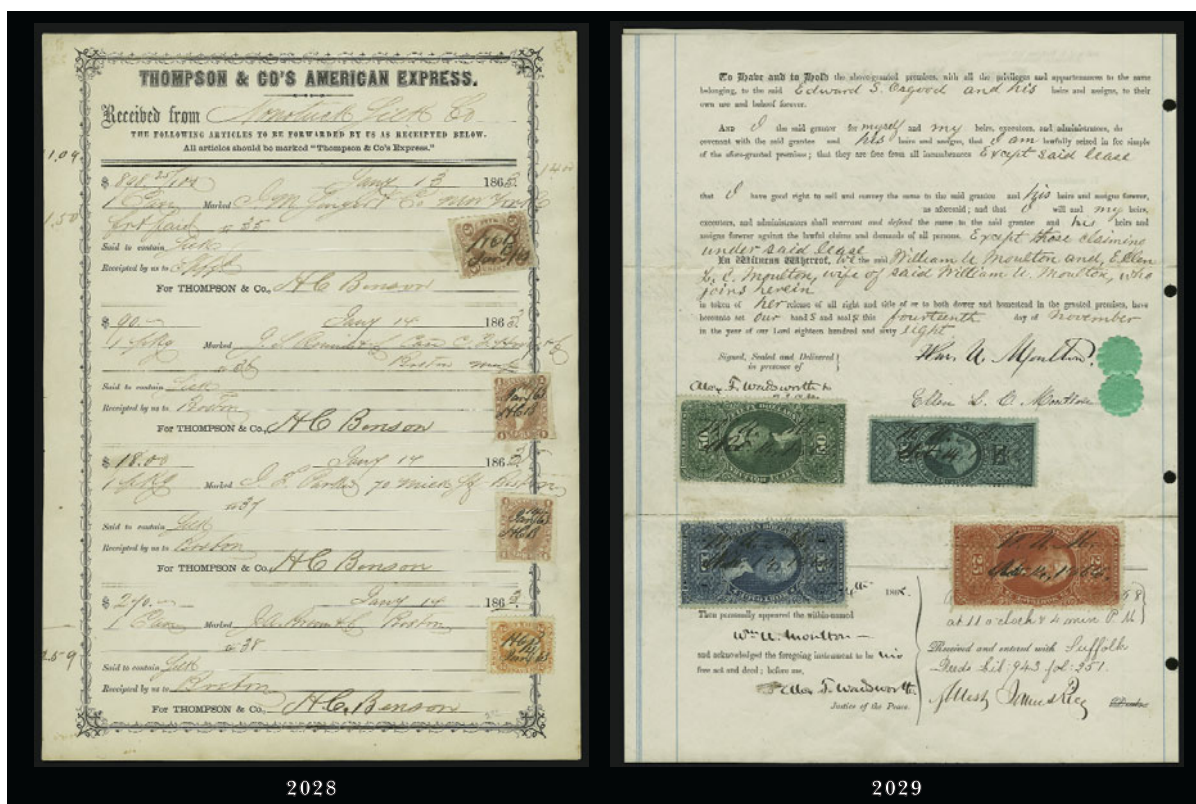 THOMPSON & CO'S AMERICAN EXPRESS.
Received from Nonotuck Silk Co
THE FOLLOWING ARTICLES TO BE FORWARDED BY US AS RECEIPTED BELOW.
All articles should be marked "Thompson & Co's Express."
1.09
$ 898 25/100 Jany 13 1863
1 Marked New York
1.50
paid 35
Said to contain Silk
Receipted by us to
For THOMPSON & Co., H C Benson
$ 90.— Jany 14 1863
1 pkg Marked
36 Boston
Said to contain Silk
Receipted by us to Boston
For THOMPSON & Co., H C Benson
$ 18.00 Jany 14 1863
1 pkg Marked 70 Milk St Boston
37
Said to contain Silk
Receipted by us to Boston
For THOMPSON & Co., H C Benson
$ 270.— Jany 14 1863
1 Marked Boston
38
Said to contain Silk
Receipted by us to Boston
For THOMPSON & Co., H. C. Benson
2028
To Have and to Hold the above-granted premises, with all the privileges and appurtenances to the same
belonging, to the said Edward S. Osgood and his heirs and assigns, to their
own use and behoof forever.
AND I the said grantor for myself and my heirs, executors, and administrators, do
covenant with the said grantee and his heirs and assigns, that I am lawfully seized in fee simple
of the afore-granted premises; that they are free from all incumbrances Except said lease
that I have good right to sell and convey the same to the said grantee and his heirs and assigns forever,
as aforesaid; and that I will and my heirs,
executors, and administrators shall warrant and defend the same to the said grantee and his heirs and
assigns forever against the lawful claims and demands of all persons. Except those claiming
under said lease
In Witness Whereof, We the said William U Moulton and, Ellen
L. C. Moulton, wife of said William U. Moulton, who
joins herein
in token of her release of all right and title of or to both dower and homestead in the granted premises, have
hereunto set our hands and seals this fourteenth day of November
in the year of our Lord eighteen hundred and sixty eight
Signed, Sealed and Delivered
in presence of
Wm. U. Moulton.
F. Wadsworth
Ellen L. C. Moulton
1868.
Then personally appeared the within-named
Wm U. Moulton —
and acknowledged the foregoing instrument to be his
free act and deed; before me,
F. Wadsworth
Justice of the Peace.
at 11 o'clock & 4 min P. M
Received and entered with Suffolk
Deeds Lib: 943 fol: 251.
Attest
2029